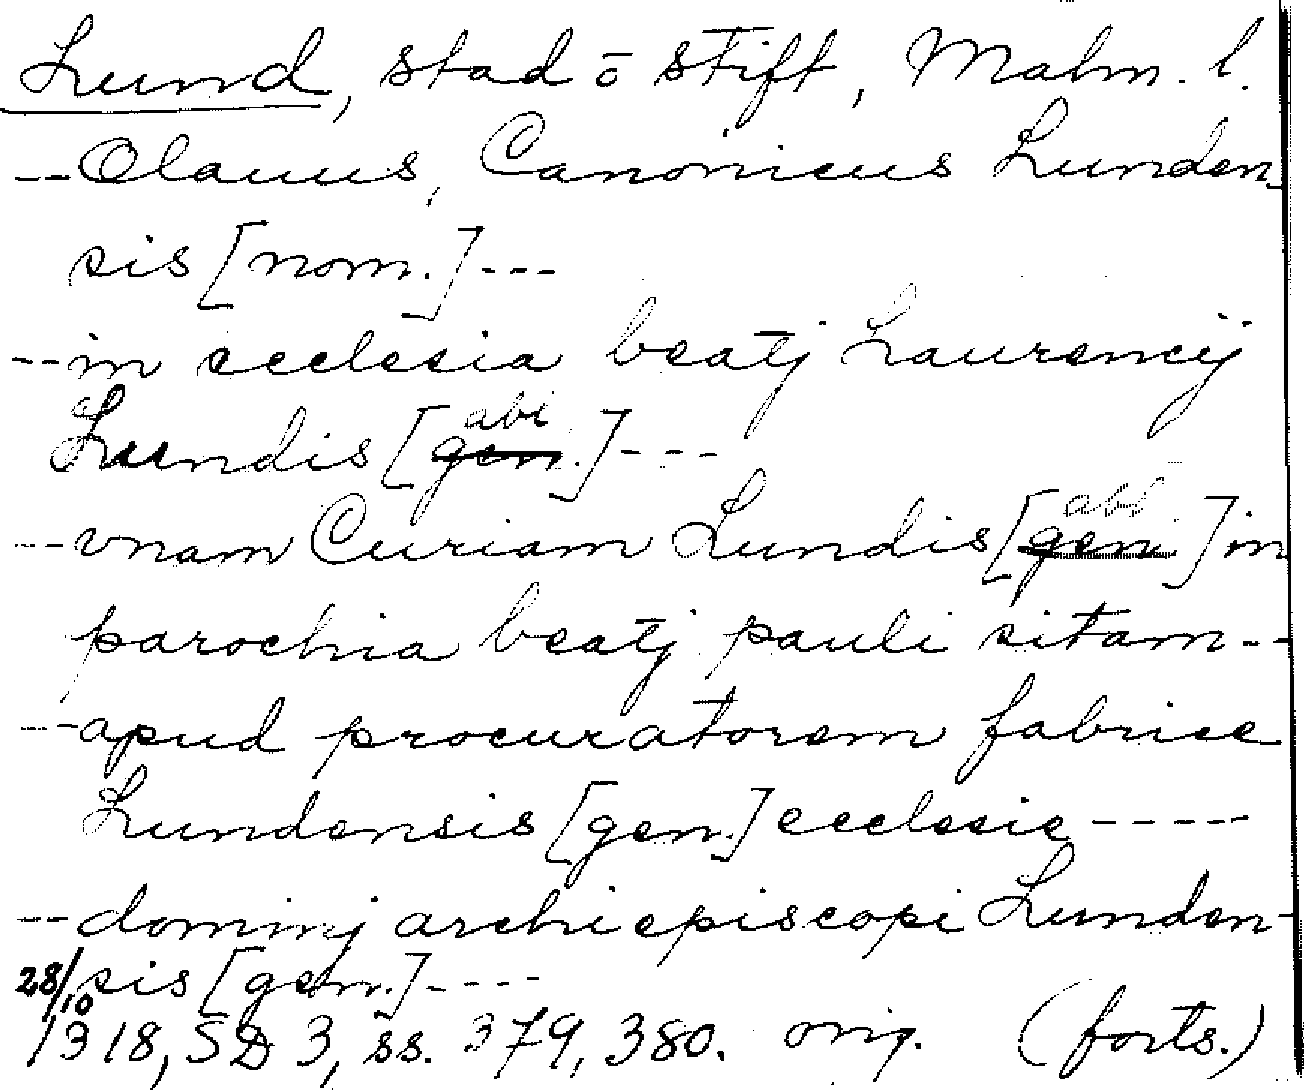 Lund, stad o stift, Malm. l.
--Olauus, Canonicus Lunden-
sis [nom.]---
--in ecclesia beatj Laurencij
Lundis [gen. abl]---
--vnam Curiam Lundis [gen. abl] in
parochia beatj pauli sitam--
--apud procuratorem fabrice
Lundensis [gen.] ecclesie-----
--dominj archiepiscopi Lunden-
sis [gen.]----
28/10 1318, SD 3, ss. 379, 380. orig. (forts.)